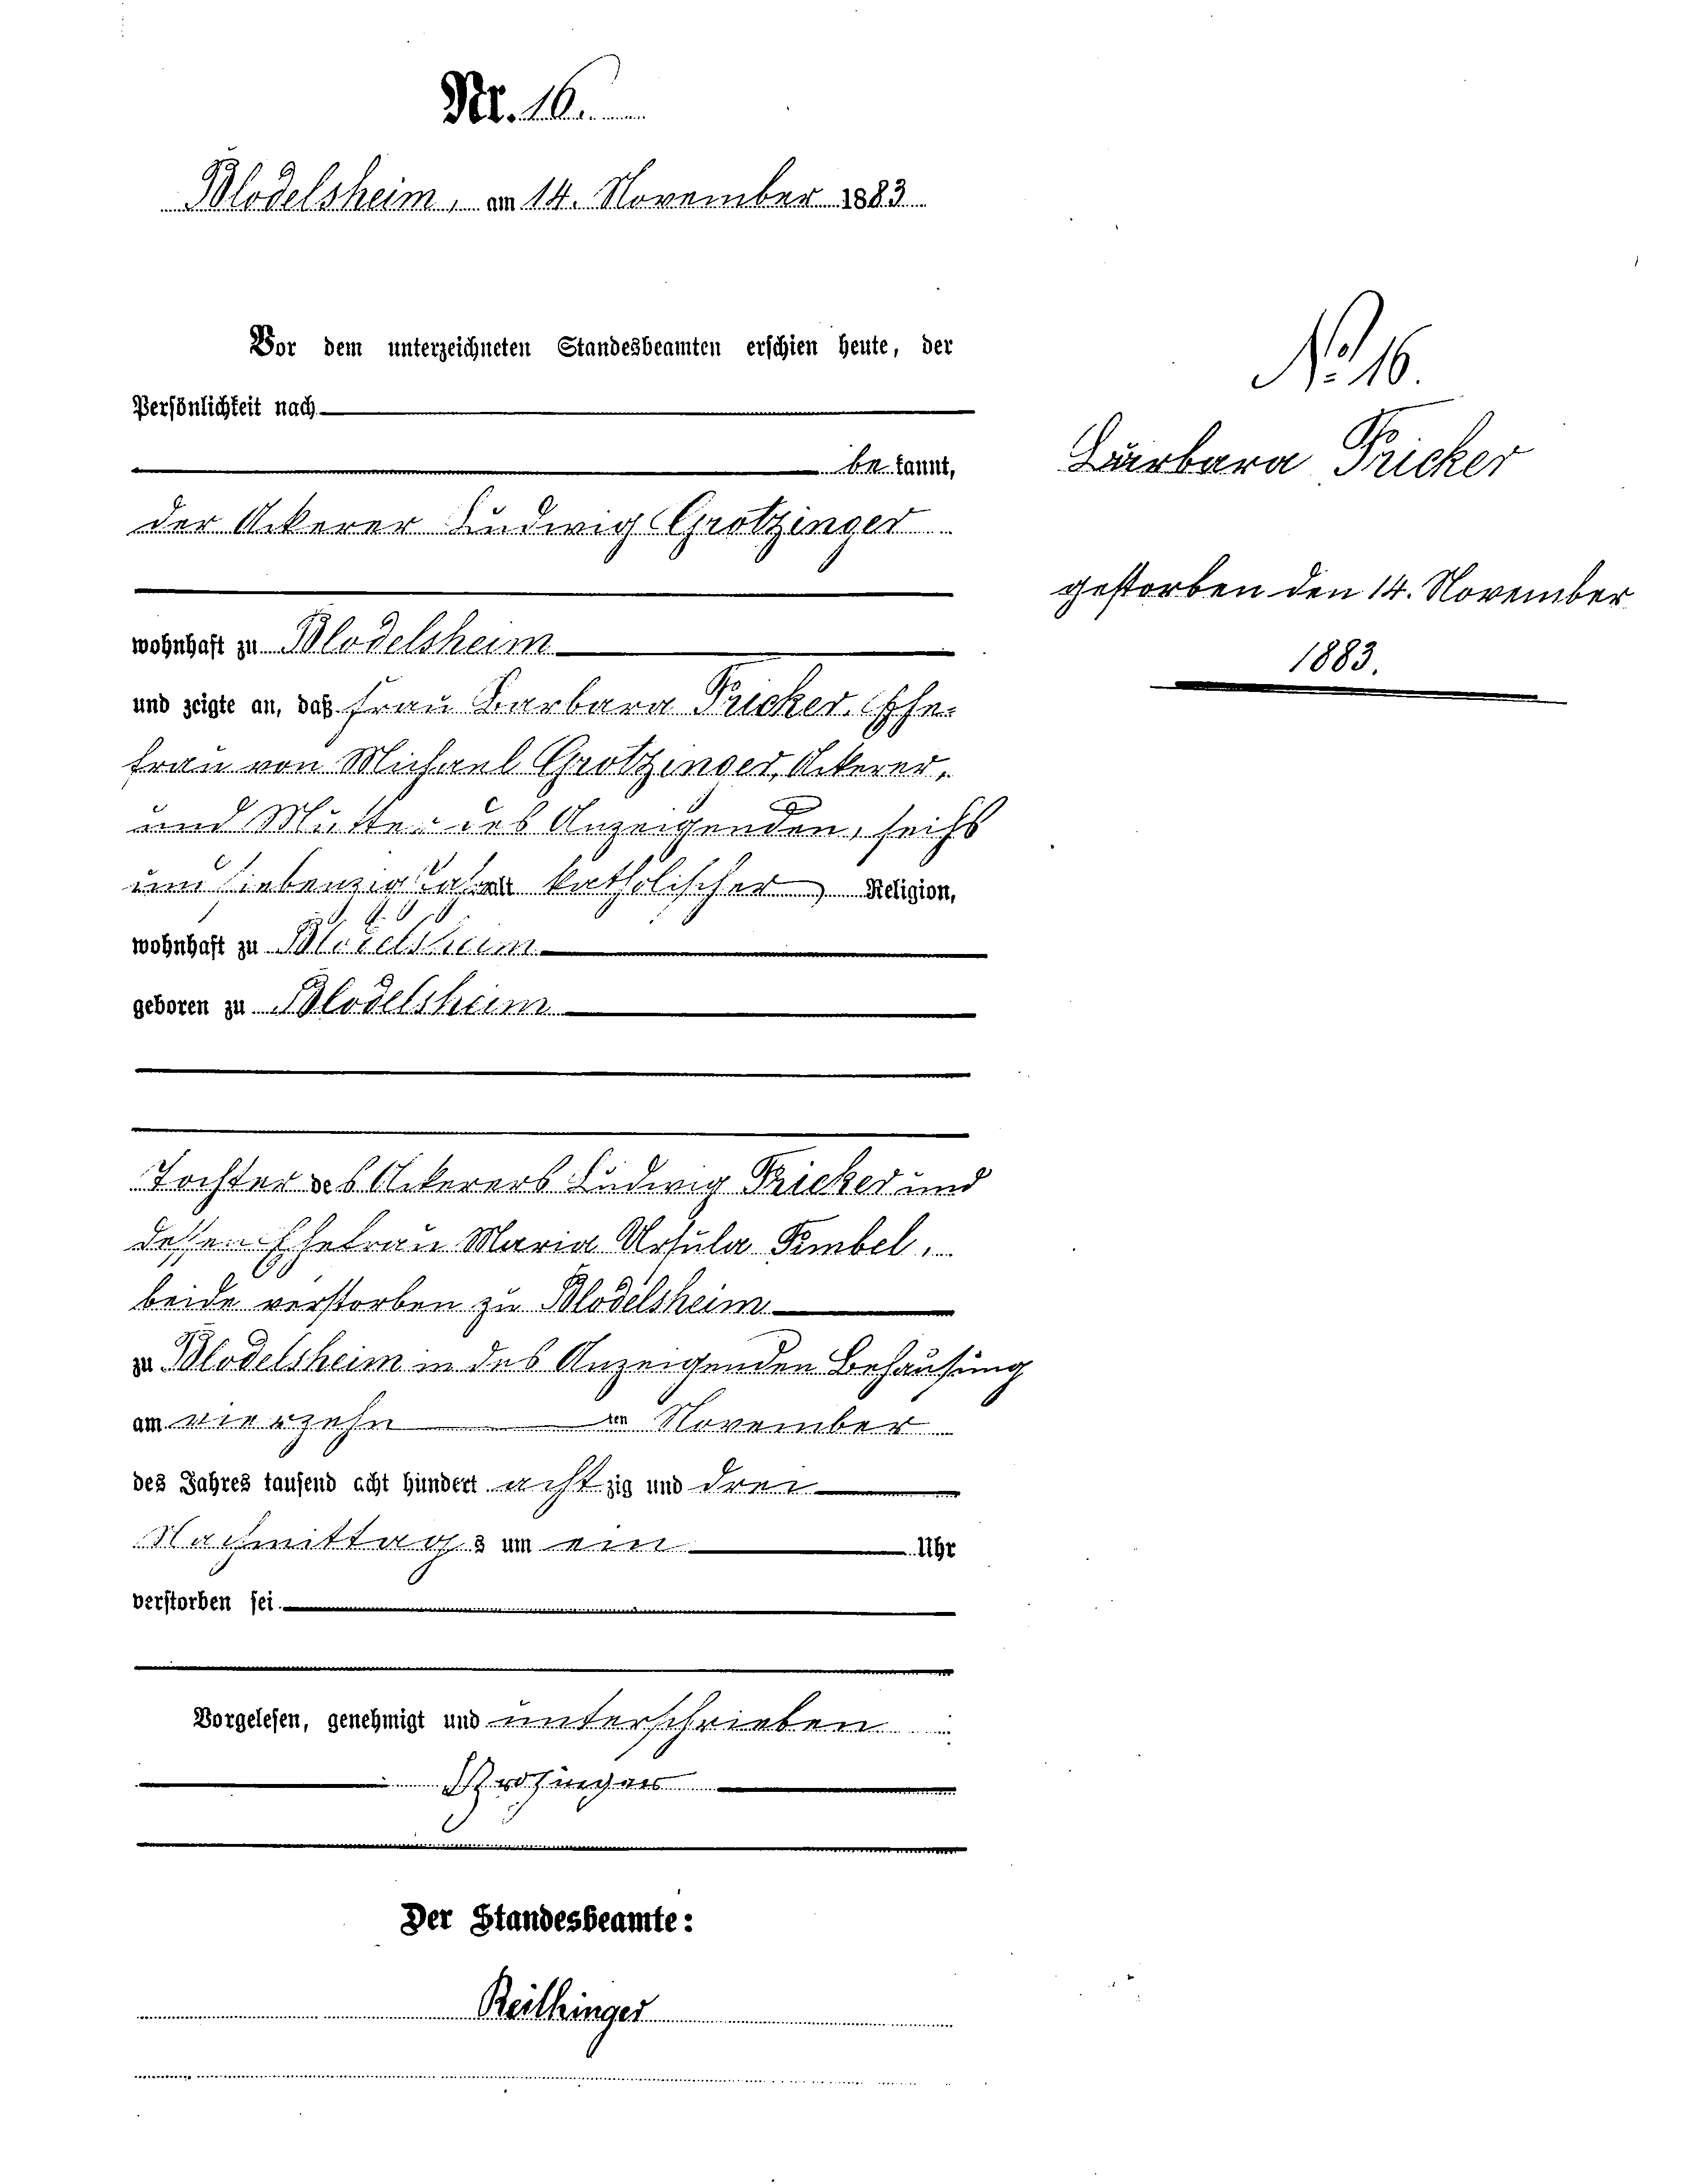 Nr. 16.
Blodelsheim, am 14. November 1883
Vor dem unterzeichneten Standesbeamten erschien heute, der
Persönlichkeit nach
be kannt,
der Ackerer Ludwig Grotzinger
wohnhaft zu Blodelsheim
und zeigte an, daß Frau Barbara Fricker, Ehe-
frau von Michael Grotzinger, Ackerer,
und Mutter des Anzeigenden, sechs
und siebenzig Jahre alt katholischer Religion,
wohnhaft zu Blodelsheim
geboren zu Blodelsheim
Tochter des Ackerers Ludwig Fricker und
dessen Ehefrau Maria Ursula Fimbel,
beide verstorben zu Blodelsheim
zu Blodelsheim in des Anzeigenden Behausung
am vierzehn ten November
des Jahres tausend acht hundert acht zig und drei
Nachmittag s um ein Uhr
verstorben sei
Vorgelesen, genehmigt und unterschrieben
Der Standesbeamte:
Reithinger
No. 16.
Barbara Fricker
gestorben den 14. November
1883.